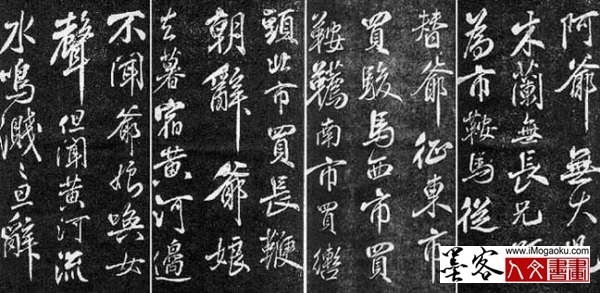 阿爺無大兒
木蘭無長兄
為市鞍馬從
替爺征東市
買駿馬西市買
鞍韉南市買轡
頭北市買長鞭
朝辭爺娘
去暮宿黃河邊
不聞爺娘喚女
聲但聞黃河流
水鳴濺〻旦辭
墨客
www.iMogaoku.com
人文書畫